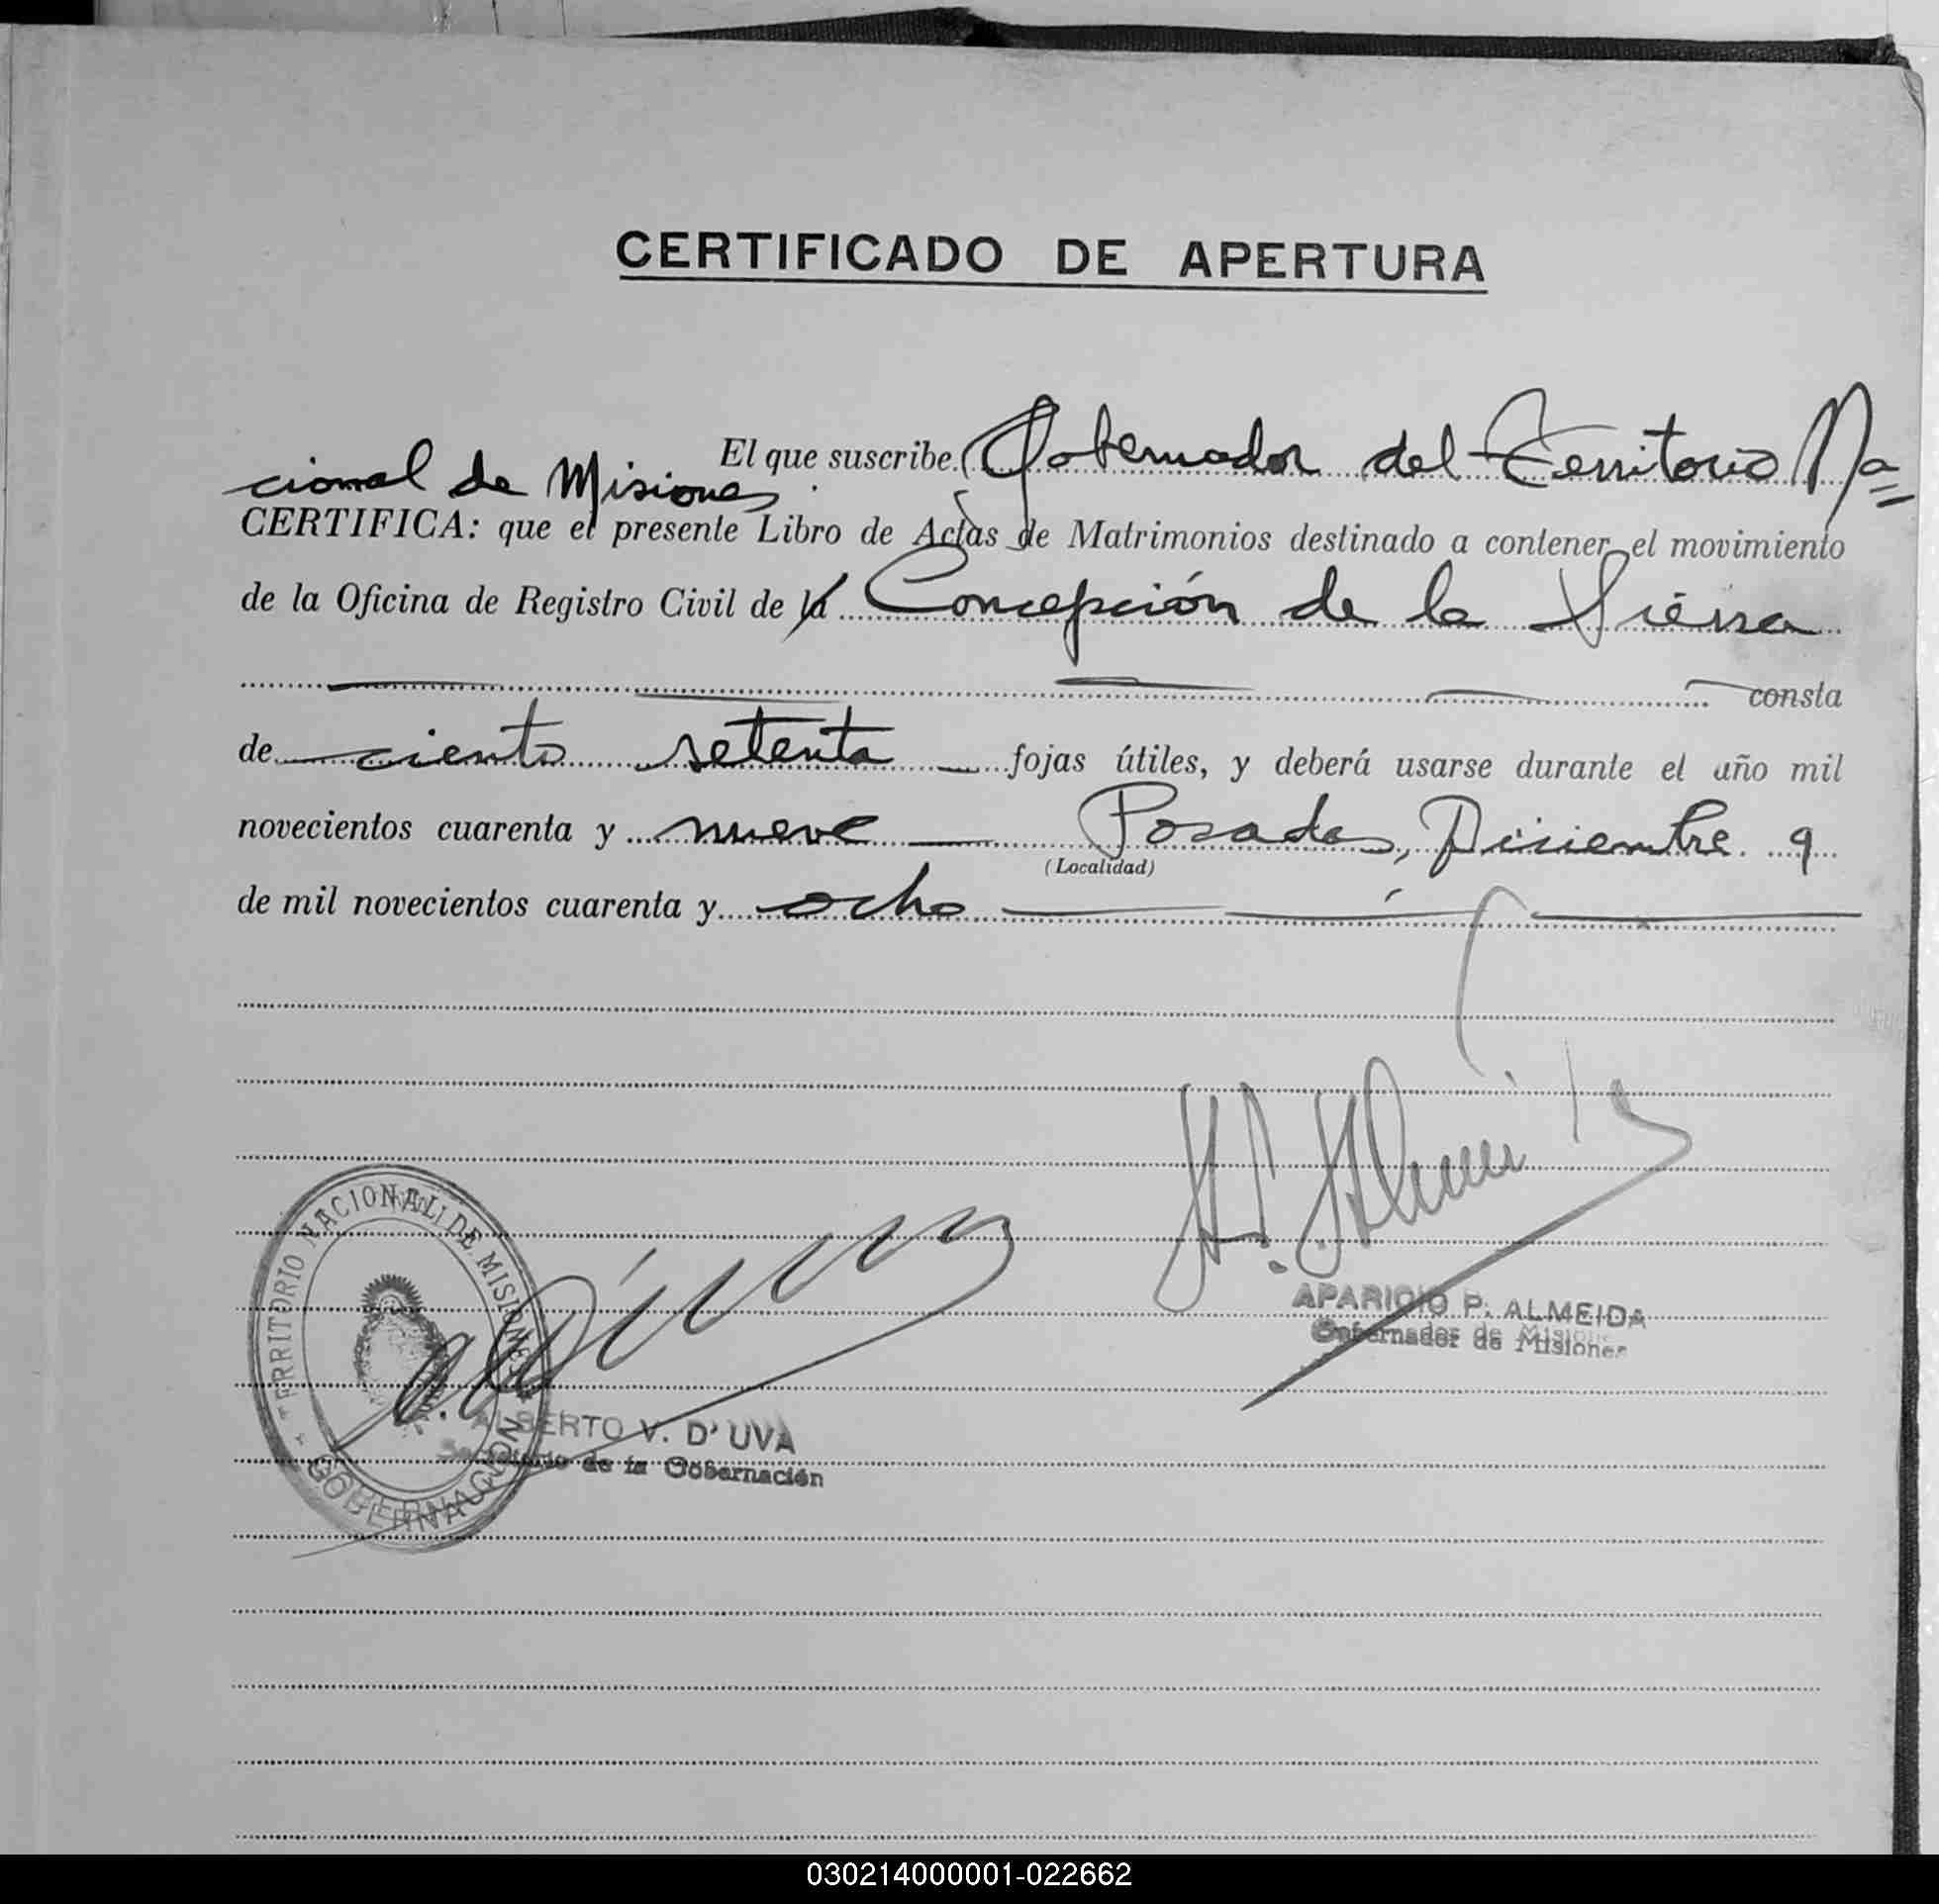 CERTIFICADO DE APERTURA
El que suscribe Gobernador del Territorio Na=
cional de Misiones
CERTIFICA: que el presente Libro de Actas de Matrimonios destinado a contener el movimiento
de la Oficina de Registro Civil de la Concepción de la Sierra
consta
de ciento setenta fojas útiles, y deberá usarse durante el año mil
novecientos cuarenta y nueve Posadas, Diciembre 9
(Localidad)
de mil novecientos cuarenta y ocho
APARICIO P. ALMEIDA
Gobernador de Misiones
TERRITORIO NACIONAL DE MISIONES
GOBERNACIÓN
ALBERTO V. D'UVA
Secretario de la Gobernación
030214000001-022662